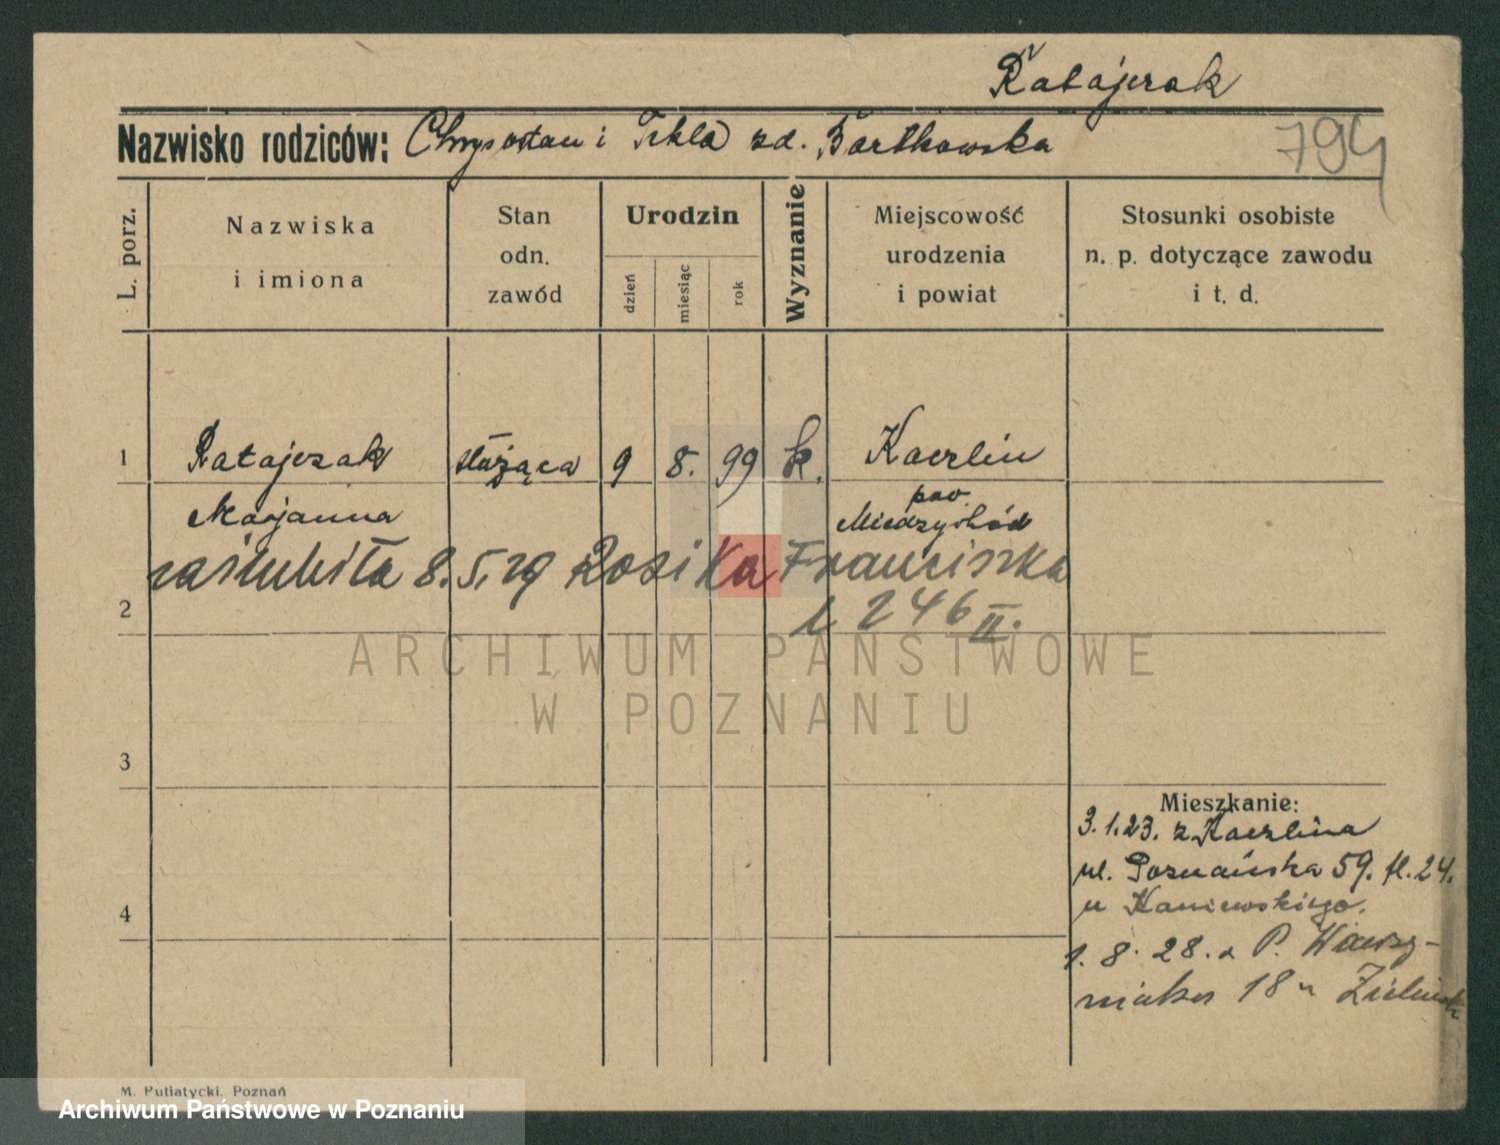 Ratajczak
Nazwisko rodziców: Chrysostom i Tekla zd. Bartkowska
794
L. porz.
Nazwiska
i imiona
Stan
odn.
zawód
Urodzin
dzień
miesiąc
rok
Wyznanie
Miejscowość
urodzenia
i powiat
Stosunki osobiste
n. p. dotyczące zawodu
i t. d.
1 Ratajczak służąca 9 8. 99 k. Kaczlin
Marjanna pow.
Międzychód
zaślubiła 8. 5. 29 Rosika Franciszka
2
L 246 II.
ARCHIWUM PAŃSTWOWE
W POZNANIU
3
Mieszkanie:
3.1.23. z Kaczlina
ul. Poznańska 59. 24.
4
u Kaniewskiego.
1. 8. 28. P. Wawrzy-
niaka 18 u
M. Putiatycki, Poznań
Archiwum Państwowe w Poznaniu